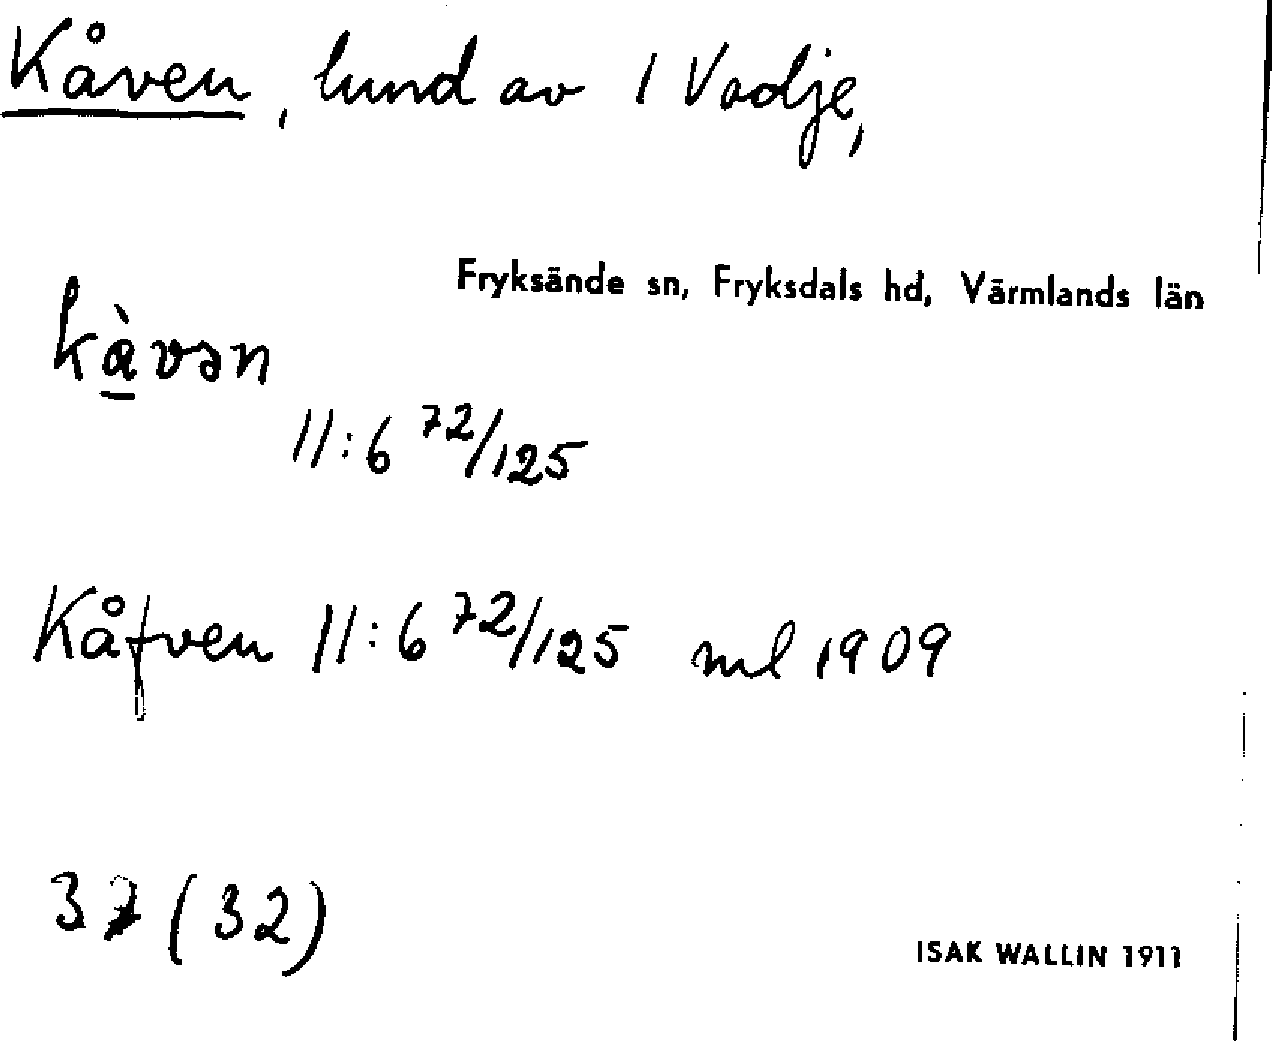 Kåven, lund av 1 Vadje,
Fryksände sn, Fryksdals hd, Värmlands län
kàvən
11:6 72/125
Kåfven 11:6 72/125 ml 1909
37 (32)
ISAK WALLIN 1911